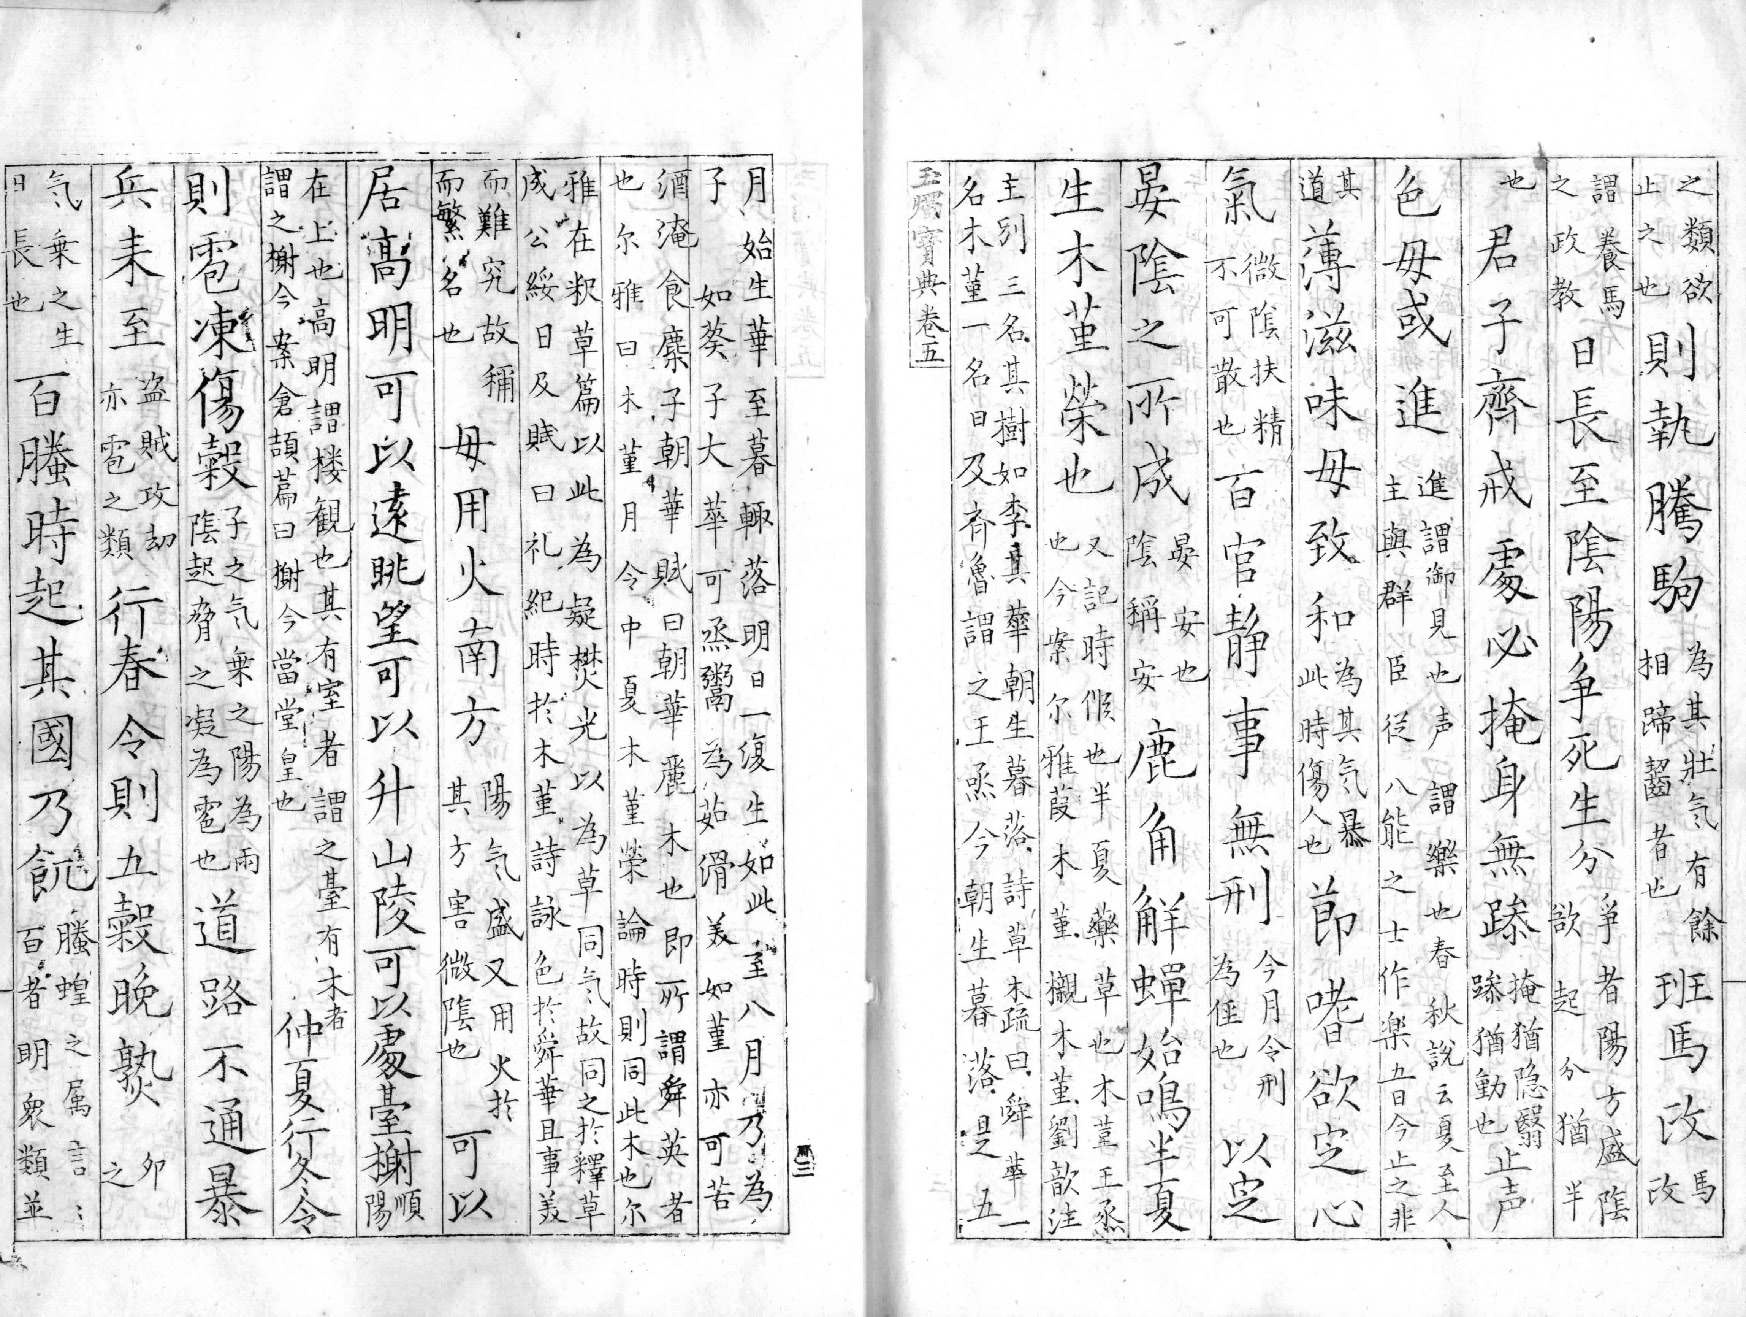 之類欲止之也則執騰駒為其壯气有餘相蹄齧者也班馬政馬政
謂養馬之政教日長至陰陽争死生分爭者陽方盛陰欲起分猶半
也君子齊戒處必掩身無躁掩猶隐翳躁猶動也止声
色毋或進進謂御見也声謂樂也春秋說云夏至人主與群臣従八能之士作楽五日今止之非
其道薄滋味毋致和為其气暴此時傷人也節嗜欲定心
氣微陰扶精不可散也百官静事無刑今月令刑為徑也以定
晏陰之所成晏安也陰稱安鹿角解蟬始鳴半夏
生木堇榮也又記時候也半夏藥草也木堇王蒸也今案尔雅葭木堇櫬木堇劉歆注
主列三名其樹如李其華朝生暮落詩草木疏曰舜華一名木堇一名曰及齐魯謂之王蒸今朝生暮落是五
玉燭寶典卷五
月始生華至暮輙落明日一復生如此至八月乃為子如葵子大華可烝鬻為茹滑美如堇亦可苦
酒淹食麋子朝華賦曰朝華麗木也即所謂舜英者也尔雅曰木堇月令中夏木堇榮論時則同此木也尔
雅在釈草篇以此為疑樊光以為草同气故同之於釋草成公綏日及賦曰礼紀時於木堇詩詠色於舜華且事美
而難究故稱而繁名也毋用火南方陽气盛又用火於其方害微陰也可以
居高明可以遠眺望可以升山陵可以處臺榭順陽
在上也高明謂楼観也其有室者謂之臺有木者謂之榭今案倉頡篇曰榭今當堂皇也仲夏行冬令
則雹凍傷穀子之气乗之陽為雨陰起脅之凝為雹也道路不通暴
兵来至盗賊攻劫亦雹之類行春令則五穀晚熟卯之
气乗之生日長也百螣時起其國乃飢螣蝗之属言〻百者明衆類並